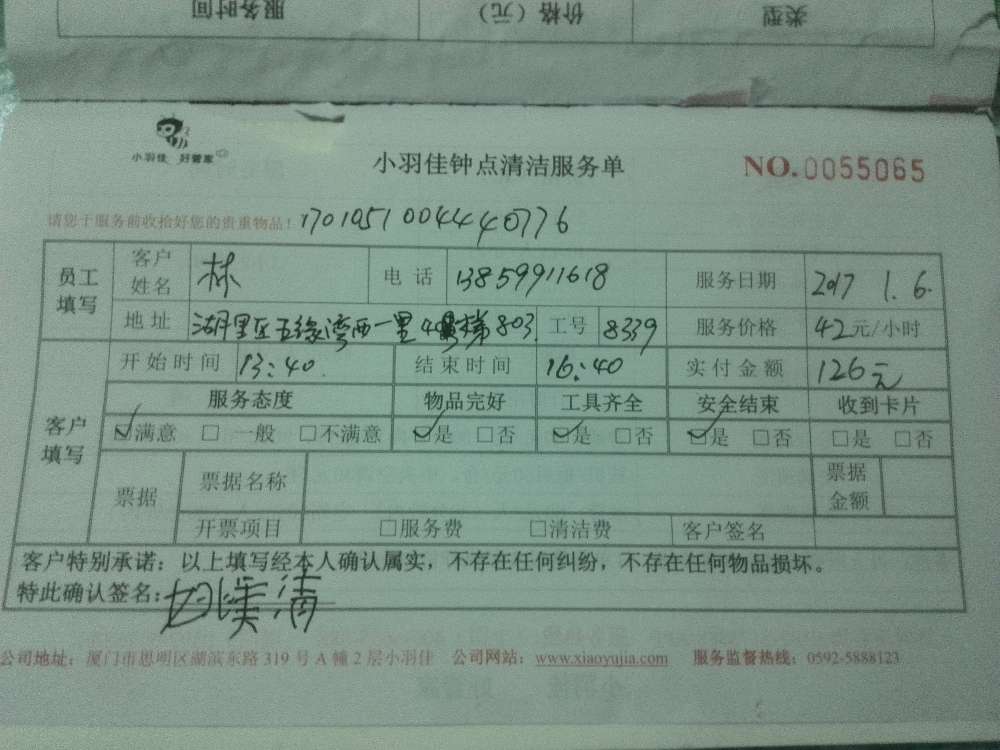 服务时间 价格（元） 类型
小羽佳 好管家
小羽佳钟点清洁服务单
NO.0055065
请您于服务前收拾好您的贵重物品！
员工填写 客户姓名 林 电话 13859911618 服务日期 2017 1.6.
地址 湖里区五缘湾西一里 803 工号 8339 服务价格 42元/小时
客户填写 开始时间 13:40 结束时间 16:40 实付金额 126元
服务态度 物品完好 工具齐全 安全结束 收到卡片
☑满意 □一般 □不满意 ☑是 □否 ☑是 □否 ☑是 □否 □是 □否
票据 票据名称 票据金额
开票项目 □服务费 □清洁费 客户签名
客户特别承诺：以上填写经本人确认属实，不存在任何纠纷，不存在任何物品损坏。
特此确认签名：
公司地址：厦门市思明区湖滨东路 319 号 A 幢 2 层小羽佳 公司网站：www.xiaoyujia.com 服务监督热线：0592-5888123